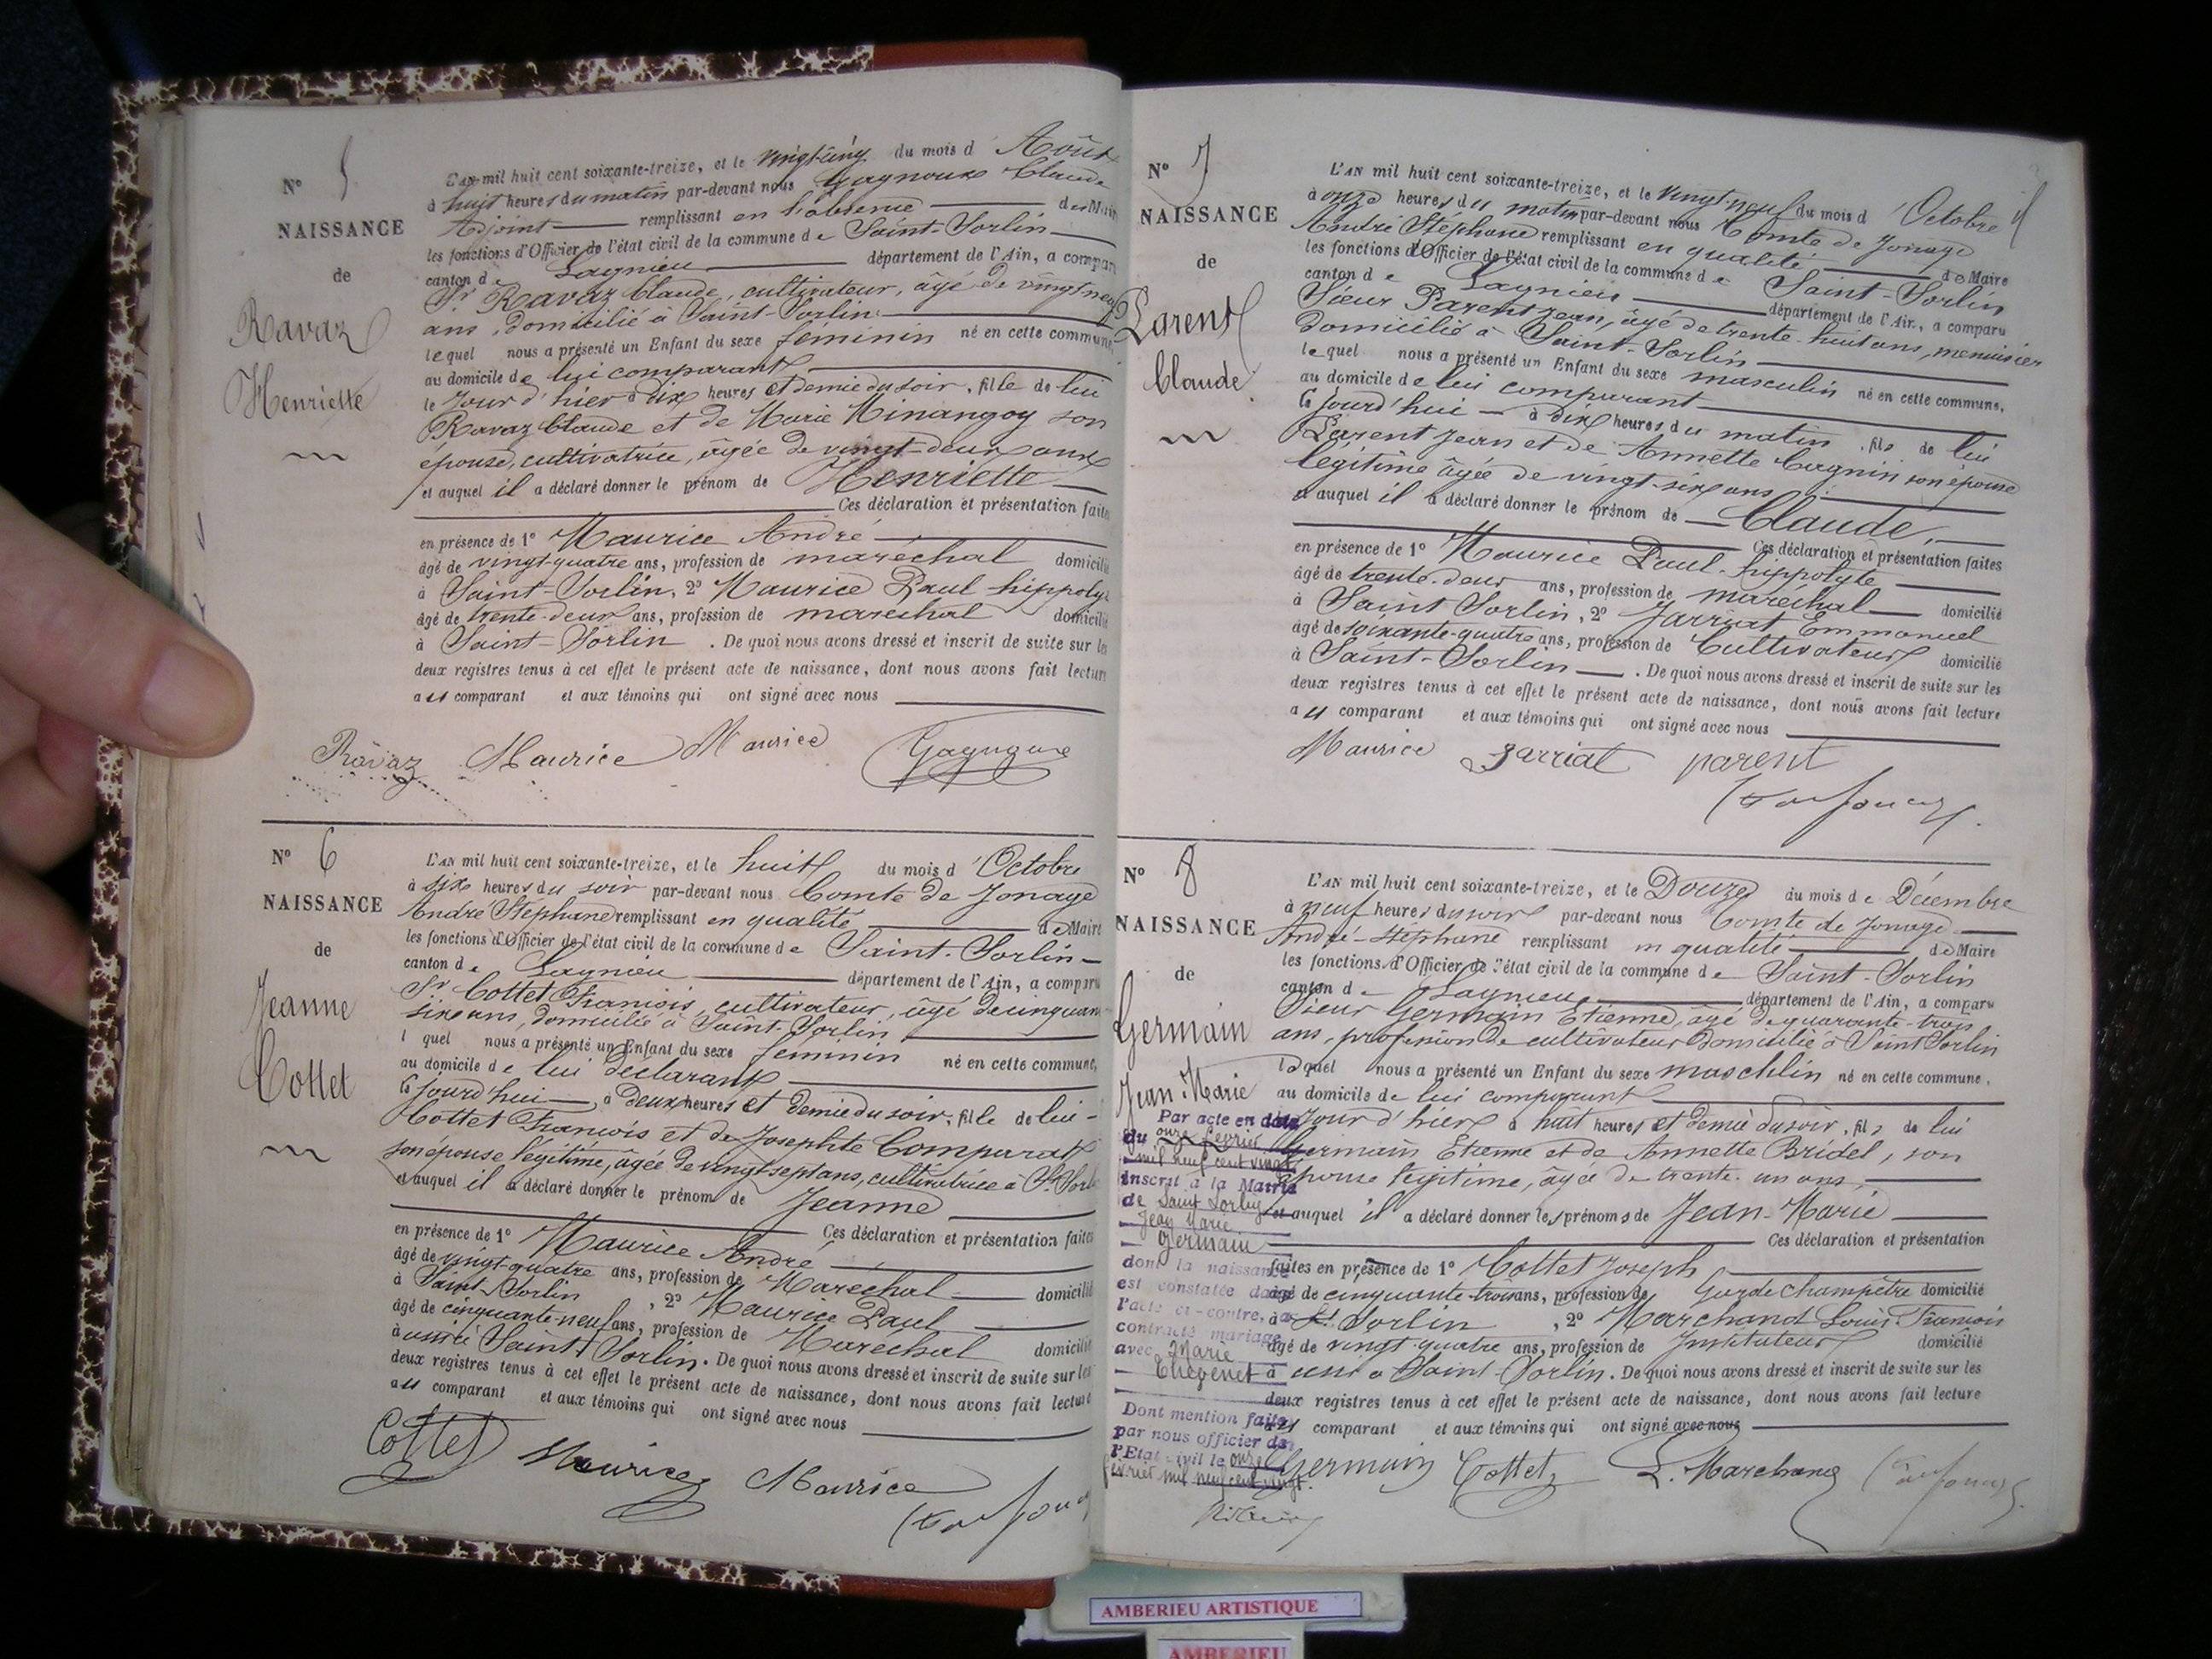 N° 5
NAISSANCE
de
Ravaz
Henriette
L'AN mil huit cent soixante-treize, et le vingt-cinq du mois d'Août
à huit heures du matin par-devant nous Claude
Adjoint remplissant en l'absence de Maire
les fonctions d'Officier de l'état civil de la commune de Saint-Sorlin
canton de Lagnieu département de l'Ain, a comparu
Sr Ravaz Claude, cultivateur, âgé de vingt neuf
ans, domicilié à Saint-Sorlin
lequel nous a présenté un Enfant du sexe féminin né en cette commune,
au domicile de lui comparant
le jour d'hier à dix heures et demie du soir, fille de lui
Ravaz Claude et de Marie Minangoy son
épouse, cultivatrice, âgée de vingt-deux ans
et auquel il a déclaré donner le prénom de Henriette
Ces déclaration et présentation faites
en présence de 1° Maurice André
âgé de vingt-quatre ans, profession de maréchal domicilié
à Saint-Sorlin, 2° Maurice Paul hippolyte
âgé de trente-deux ans, profession de maréchal domicilié
à Saint-Sorlin. De quoi nous avons dressé et inscrit de suite sur les
deux registres tenus à cet effet le présent acte de naissance, dont nous avons fait lecture
au comparant et aux témoins qui ont signé avec nous
Ravaz Maurice Maurice
N° 6
NAISSANCE
de
Jeanne
Cottet
L'AN mil huit cent soixante-treize, et le huit du mois d'Octobre
à six heures du soir par-devant nous Comte de Jonage
André Stéphane remplissant en qualité de Maire
les fonctions d'Officier de l'état civil de la commune de Saint-Sorlin
canton de Lagnieu département de l'Ain, a comparu
Sr Cottet François, cultivateur, âgé de cinquante
six ans, domicilié à Saint-Sorlin
l quel nous a présenté un Enfant du sexe féminin né en cette commune,
au domicile de lui déclarant
Ce jourd'hui à deux heures et demie du soir, fille de lui
Cottet François et de Josephte Comparat
son épouse légitime, âgée de vingt sept ans, cultivatrice à St Sorlin
et auquel il a déclaré donner le prénom de Jeanne
Ces déclaration et présentation faites
en présence de 1° Maurice André
âgé de vingt-quatre ans, profession de Maréchal domicilié
à Saint-Sorlin, 2° Maurice Paul
âgé de cinquante-neuf ans, profession de Maréchal domicilié
à aussi à Saint Sorlin. De quoi nous avons dressé et inscrit de suite sur les
deux registres tenus à cet effet le présent acte de naissance, dont nous avons fait lecture
au comparant et aux témoins qui ont signé avec nous
Cottet Maurice Maurice
N° 7
NAISSANCE
de
Parent
Claude
L'AN mil huit cent soixante-treize, et le vingt-neuf du mois d'Octobre
à onze heures du matin par-devant nous Comte de Jonage
André Stéphane remplissant en qualité de Maire
les fonctions d'Officier de l'état civil de la commune de Saint-Sorlin
canton de Lagnieu département de l'Ain, a comparu
Sieur Parent Jean, âgé de trente-huit ans, menuisier
domicilié à Saint-Sorlin
lequel nous a présenté un Enfant du sexe masculin né en cette commune,
au domicile de lui comparant
Ce jourd'hui à dix heures du matin, fils de lui
Parent Jean et de Annette Cagnin son épouse
légitime âgée de vingt-six ans
et auquel il a déclaré donner le prénom de Claude,
Ces déclaration et présentation faites
en présence de 1° Maurice Paul-hippolyte
âgé de trente-deux ans, profession de maréchal domicilié
à Saint Sorlin, 2° Jarriat Emmanuel
âgé de soixante-quatre ans, profession de Cultivateur domicilié
à Saint-Sorlin. De quoi nous avons dressé et inscrit de suite sur les
deux registres tenus à cet effet le présent acte de naissance, dont nous avons fait lecture
au comparant et aux témoins qui ont signé avec nous
Maurice Jarriat parent
N° 8
NAISSANCE
de
Germain
Jean-Marie
Par acte en date
du onze février
mil neuf cent vingt
inscrit à la Mairie
de Saint Sorlin
Jean Marie
Germain
dont la naissance
est constatée dans
l'acte ci-contre, a
contracté mariage
avec Marie
Thévenet
Dont mention faite
par nous officier de
l'Etat-civil le onze
février mil neuf cent vingt.
L'AN mil huit cent soixante-treize, et le Douze du mois de Décembre
à neuf heures du soir par-devant nous Comte de Jonage
André-Stéphane remplissant en qualité de Maire
les fonctions d'Officier de l'état civil de la commune de Saint-Sorlin
canton de Lagnieu département de l'Ain, a comparu
Sieur Germain Etienne, âgé de quarante-trois
ans, profession de cultivateur Domicilié à Saint Sorlin
lequel nous a présenté un Enfant du sexe maschlin né en cette commune,
au domicile de lui comparant
jour d'hier à huit heures et demie du soir, fils de lui
Germain Etienne et de Annette Bridel, son
épouse légitime, âgée de trente-un ans,
et auquel il a déclaré donner les prénoms de Jean-Marie
Ces déclaration et présentation
faites en présence de 1° Cottet Joseph
âgé de cinquante-trois ans, profession de Garde champêtre domicilié
à St Sorlin, 2° Marchand Louis François
âgé de vingt-quatre ans, profession de Instituteur domicilié
à à Saint-Sorlin. De quoi nous avons dressé et inscrit de suite sur les
deux registres tenus à cet effet le présent acte de naissance, dont nous avons fait lecture
au comparant et aux témoins qui ont signé avec nous
Germain Cottet L. Marchand
AMBERIEU ARTISTIQUE
AMBERIEU